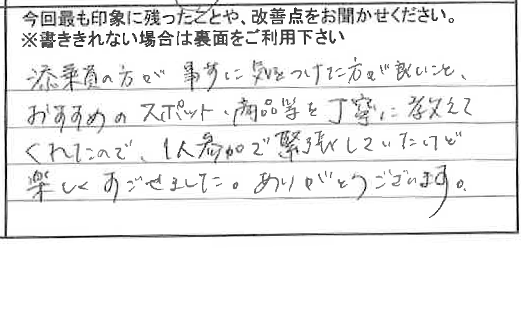 今回最も印象に残ったことや、改善点をお聞かせください。
※書ききれない場合は裏面をご利用下さい
添乗員の方が 事前に気をつけた方が良いこと、
おすすめのスポット、商品等を丁寧に教えて
くれたので、1人参加で緊張していたけど
楽しくすごせました。ありがとうございます。